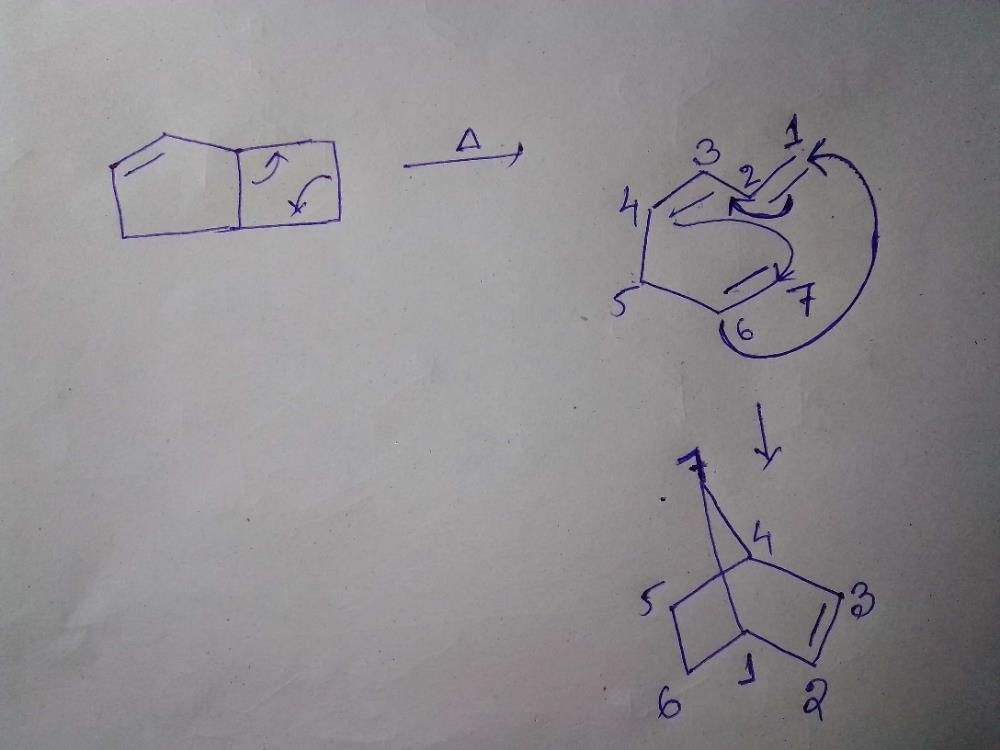 Δ
1
3
2
4
5
7
6
7
4
5
3
1
6
2